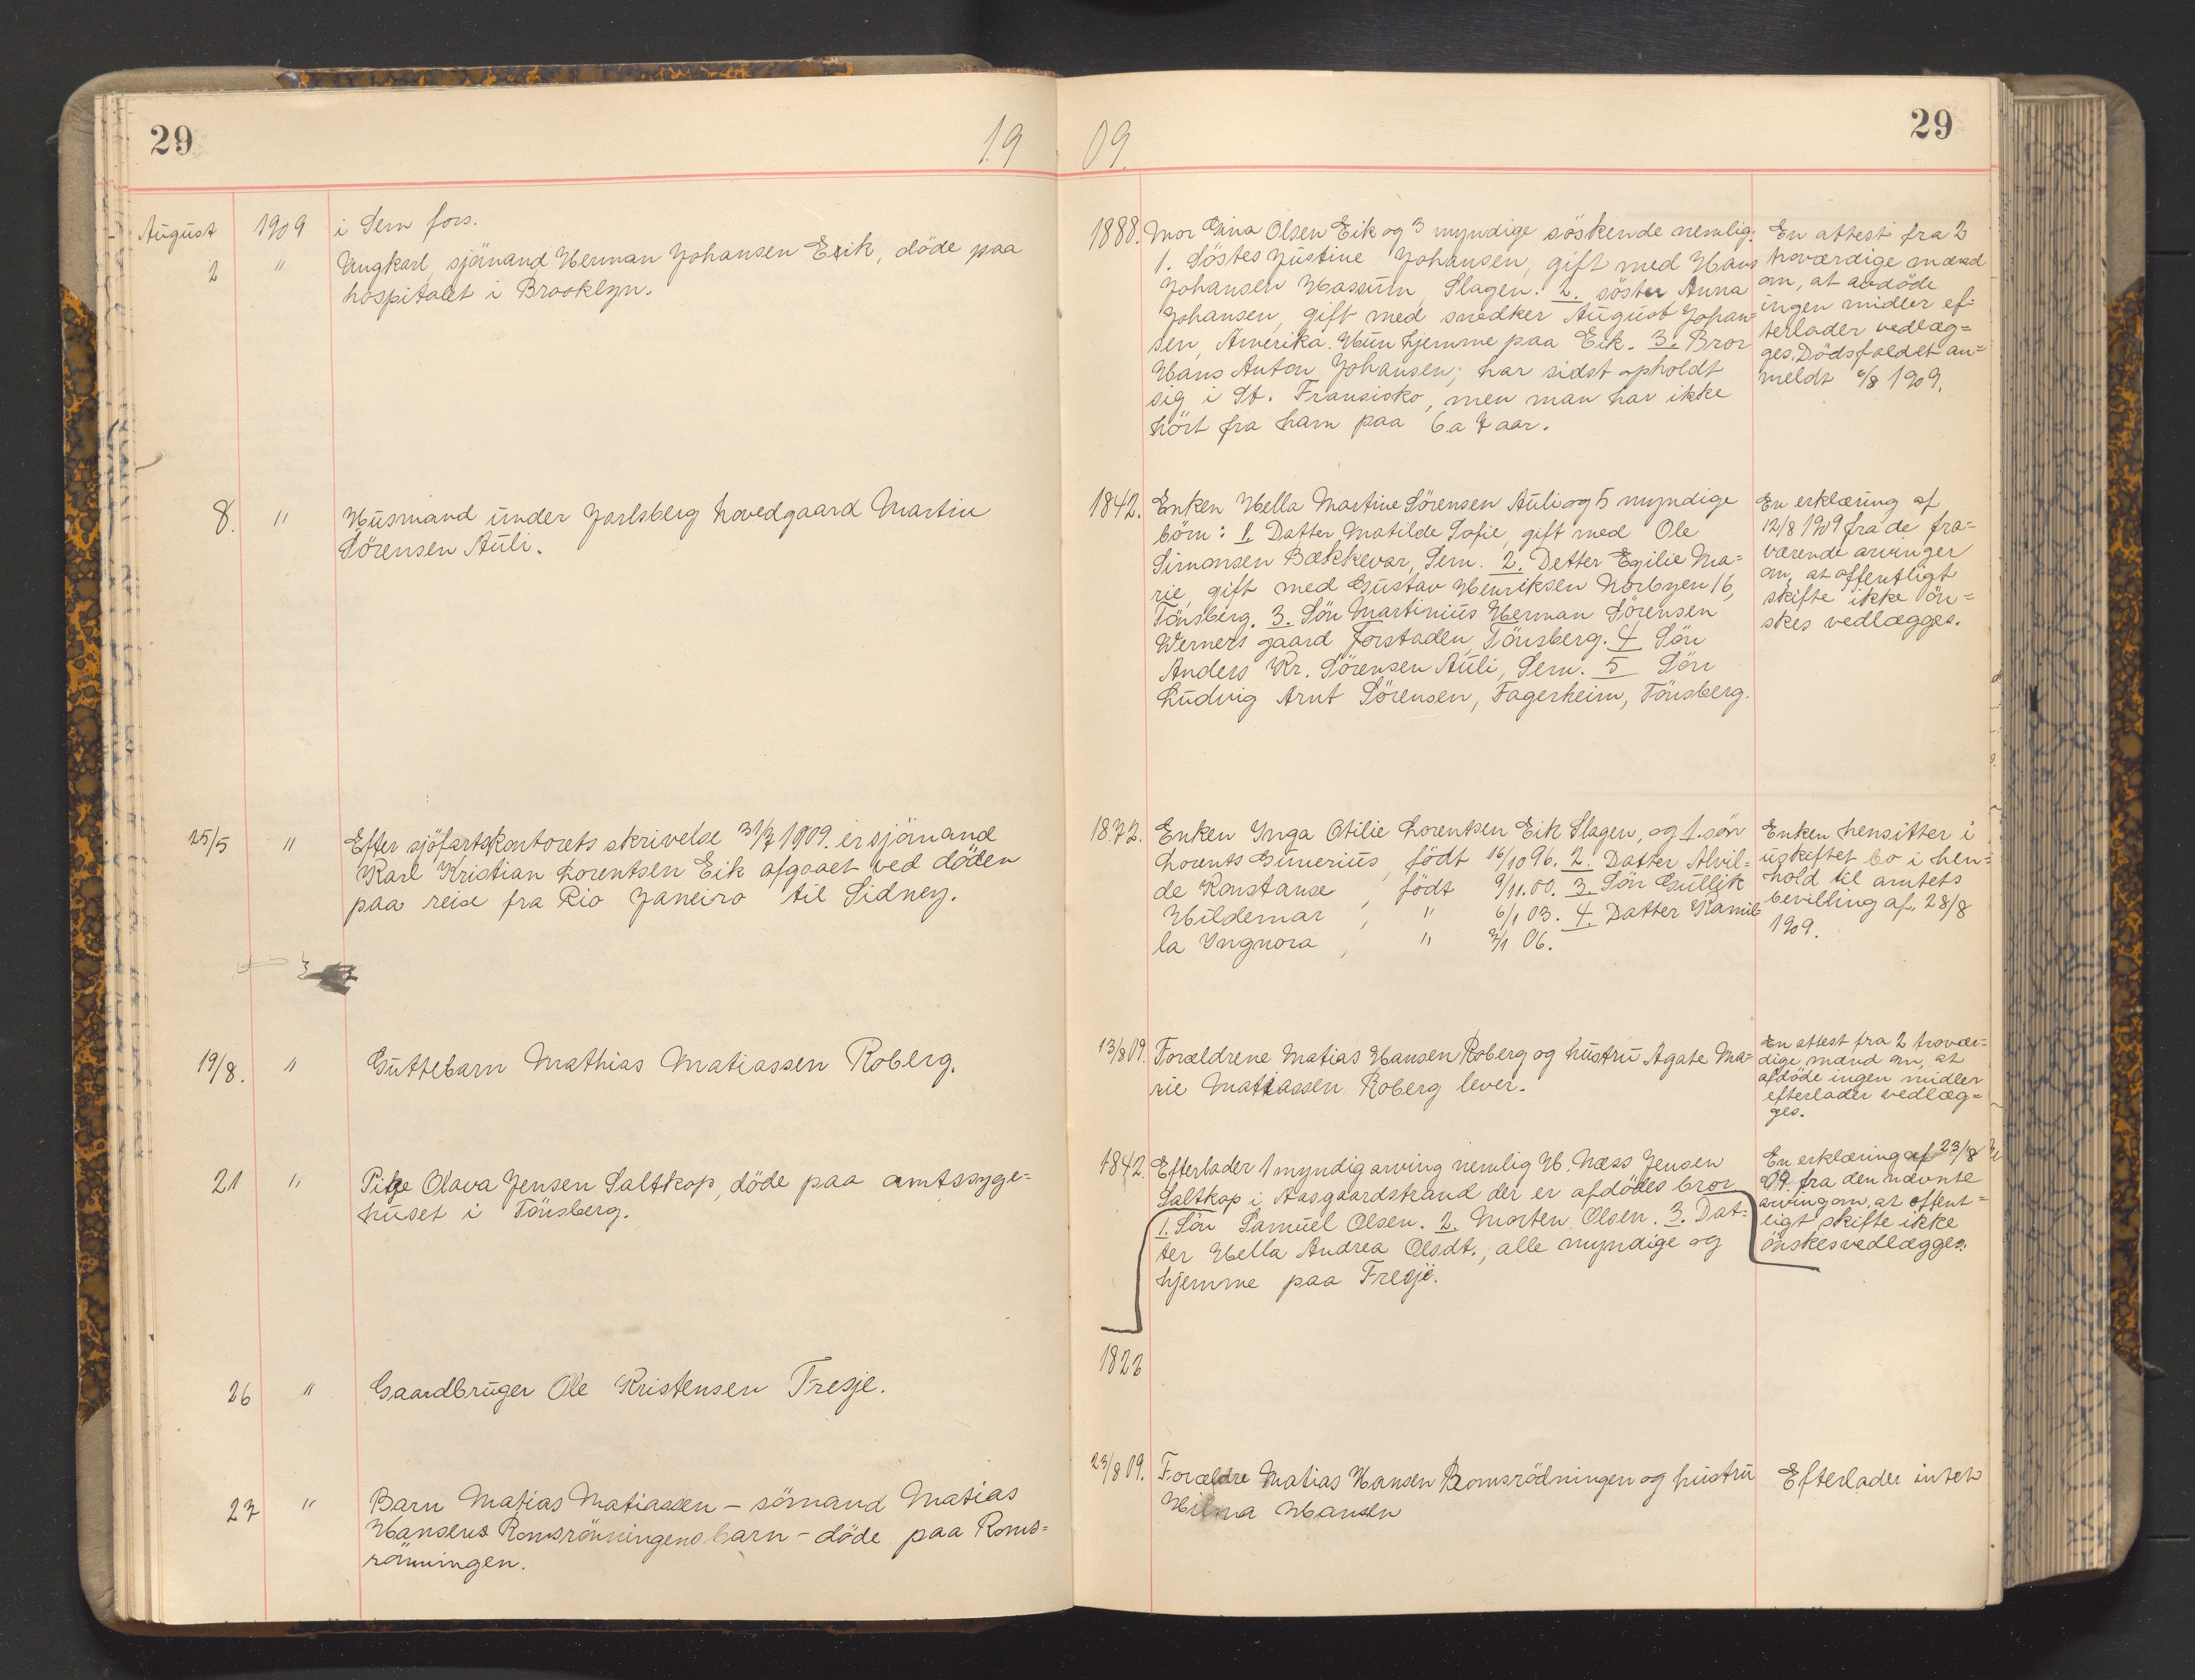 29
19
09.
29
August 1909 i Sem fors.
2 " Ungkarl, sjömand Herman Johansen Eik, döde paa
hospitalet i Brooklyn.
1888. Mor Gina Olsen Eik og 3 myndige söskende nemlig:
1. Söstes Justine Johansen, gift med Hans
Johansen Hassum, Slagen. 2. söster Anna
Johansen, gift med snedker August Johan=
sen, Amerika. Hun hjemme paa Eik. 3. Bror
Hans Anton Johansen; har sidst opholdt
sig i St. Fransisko, men man har ikke
hört fra ham paa 6 a 7 aar.
En attest fra 2
troværdige mænd
om, at avdöde
ingen midler ef=
terlader vedlæg=
ges. Dödsfaldet an=
meldt 6/8 1909.
8. " Husmand under Jarlsberg hovedgaard Martin
Sörensen Auli.
1842. Enken Hella Martine Sörensen Auli og 5 myndige
börn: 1. Datter Matilde Sofie, gift med Ole
Simonsen Bækkevar, Sem. 2. Detter Egilie Ma=
rie, gift med Gustav Henriksen Norbyen 16,
Tönsberg. 3. Sön Martinius Herman Sörensen
Werners gaard Forstaden, Tönsberg. 4 Sön
Anders Kr. Sörensen Auli, Sem. 5 Sön
Ludvig Arnt Sörensen, Fagerheim, Tönsberg.
En erklæring af
12/8 1909 fra de fra=
værende arvinger
om, at offentligt
skifte ikke ön=
skes vedlægges.
25/5 " Efter sjöfartskontorets skrivelse 31/7 1909. er sjömand
Karl Kristian Lorentsen Eik afgaaet ved döden
paa reise fra Rio Janeiro til Sidney.
1872. Enken Inga Otilie Lorentsen Eik Slagen, og 1. sön
Lorents Gunerius, födt 16/10 96. 2. Datter Alvil=
de Konstanse, födt 9/11.00. 3. Sön Gullik
Hildemar, " 6/1 03. 4. Datter Kamil=
la Ingnora, " 2/1 06.
Enken hensitter i
uskiftet bo i hen=
hold til amtets
bevilling af. 28/8
1909.
19/8. " Guttebarn Mathias Matiassen Roberg.
13/8 09. Forældrene Matias Hansen Roberg og hustru Agate Ma=
rie Matiassen Roberg lever.
En attest fra 2 trovær=
dige mænd om, at
afdöde ingen midler
efterlader vedlæg=
ges.
21 " Pige Olava Jensen Saltkop, döde paa amtssyge=
huset i Tönsberg.
1842. Efterlader 1 myndig arving nemlig H. Næss Jensen
Saltkop i Aasgaardstrand der er afdödes bror
1. Sön Samuel Olsen. 2. Morten Olsen. 3. Dat=
ter Hella Andrea Olsdt., alle myndige og
hjemme paa Fresje.
En erklæring af 23/8
09. fra den nævnte
arving om, at offent=
ligt skifte ikke
önskes vedlægges.
26 " Gaardbruger Ole Kristensen Fresje.
1822
27 " Barn Matias Matiassen - sömand Matias
Hansens Romsrönningens barn - döde paa Roms=
rönningen.
23/8 09. Forældre Matias Hansen Romsrödningen og hustru
Hilma Hansen
Efterlader intet